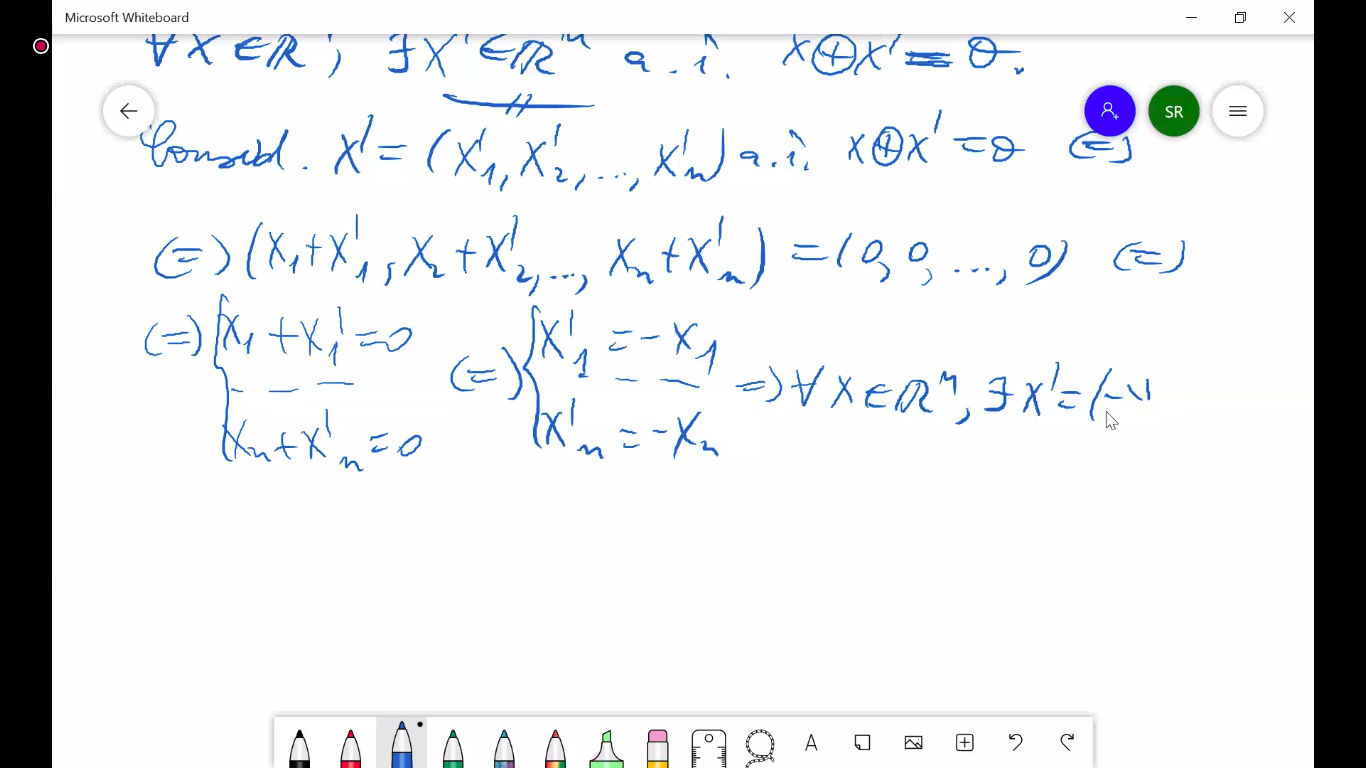 Microsoft Whiteboard
∀ x ∈ ℝⁿ, ∃ x' ∈ ℝⁿ a.î. x ⊕ x' = θ.
SR
Consid. x' = (x'₁, x'₂, ..., x'ₙ) a.î. x ⊕ x' = θ (=)
(=) (x₁ + x'₁, x₂ + x'₂, ..., xₙ + x'ₙ) = (0, 0, ..., 0) (=)
(=) { x₁ + x'₁ = 0 _ _ _ xₙ + x'ₙ = 0 (=) { x'₁ = -x₁ _ _ x'ₙ = -xₙ =) ∀ x ∈ ℝⁿ, ∃ x' = (-
A